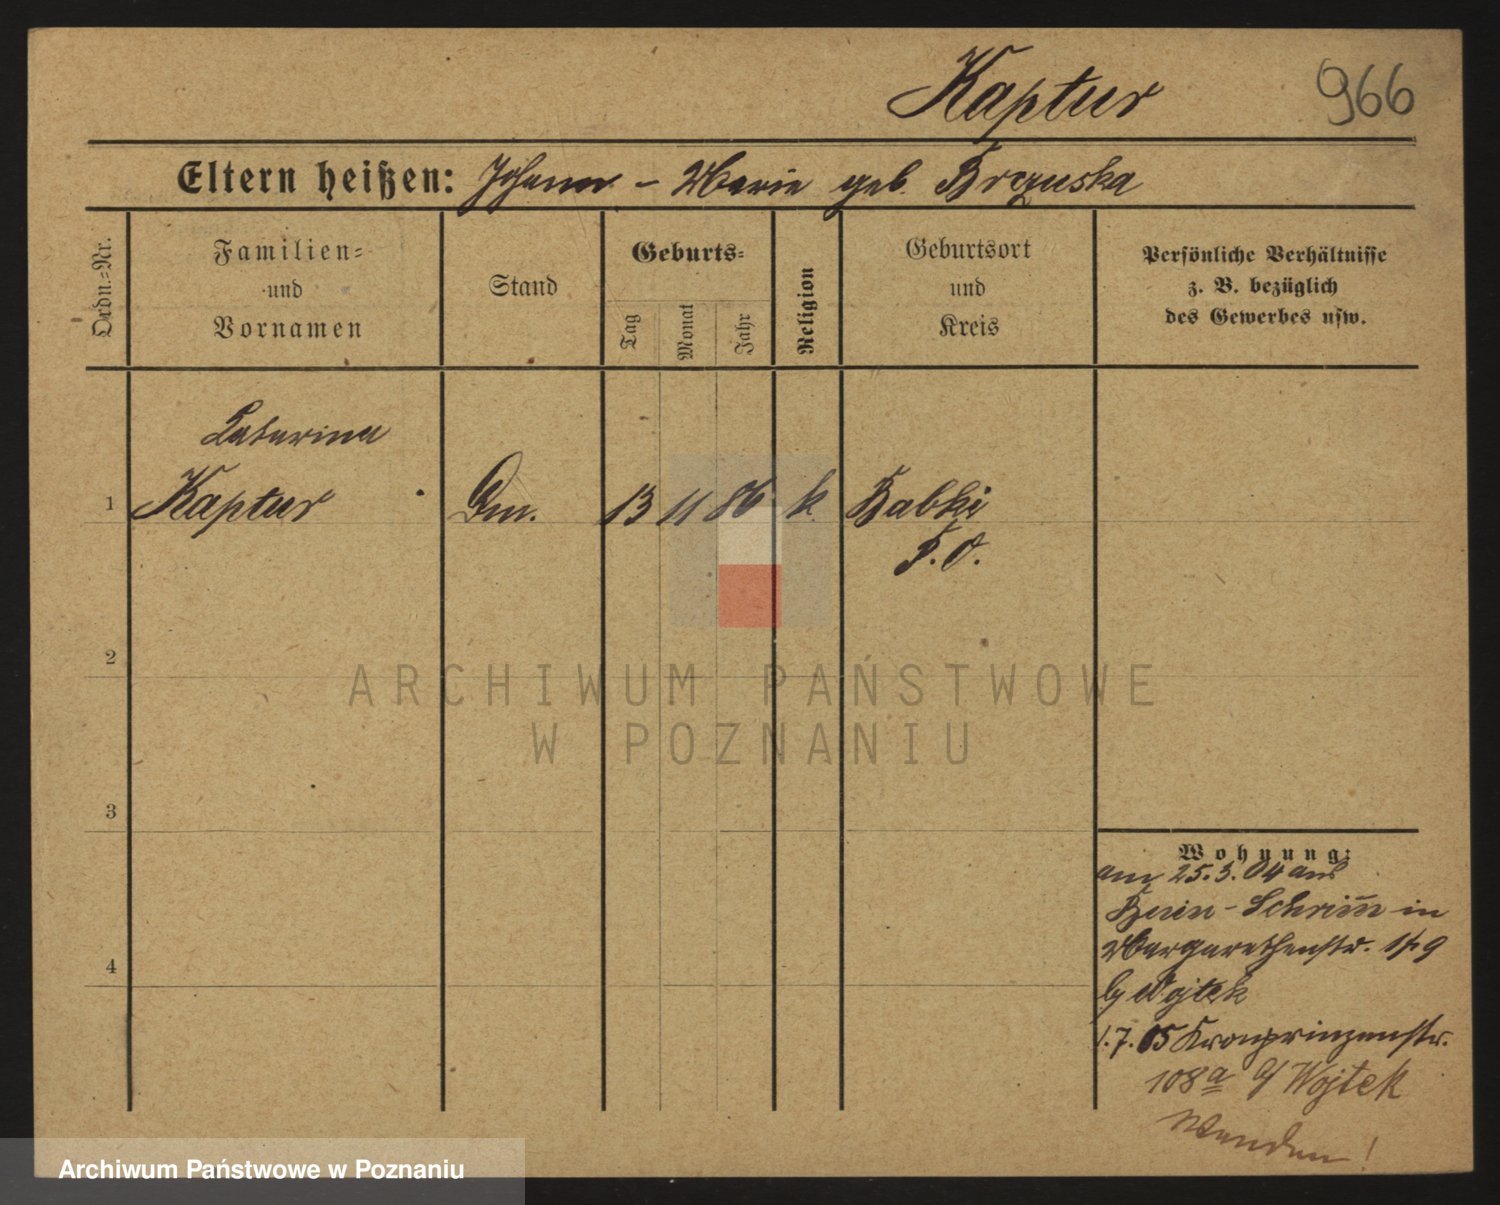 Kaptur 966
Eltern heißen: Johann - Marie geb. Brzuska
Ordn.=Nr.
Familien=
und
Vornamen
Stand
Geburts=
Tag
Monat
Jahr
Religion
Geburtsort
und
Kreis
Persönliche Verhältnisse
z. B. bezüglich
des Gewerbes usw.
Katarina
1 Kaptur Dm. 13 11 86 k. Babki
P. O.
2
ARCHIWUM PAŃSTWOWE
W POZNANIU
3
4
Wohnung:
am 25.3.04 aus
Bnin - Schrim̄ in
Margarethenstr. 19
b/ Wojtek
1.7.05 Kronprinzenstr.
108a b/ Wojtek
Wenden!
Archiwum Państwowe w Poznaniu